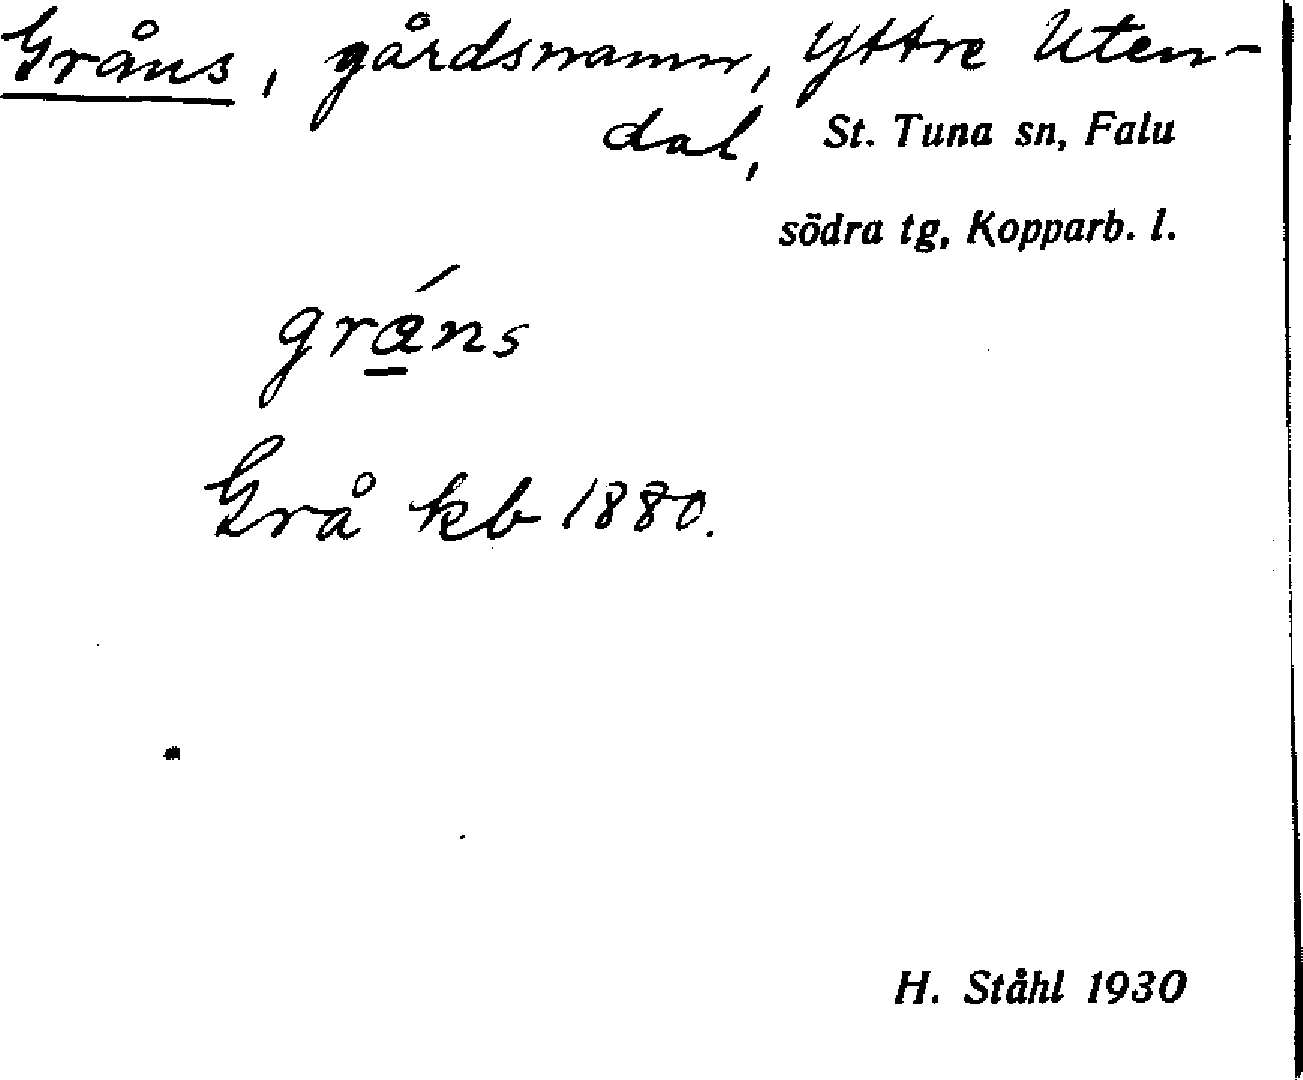 Gråns, gårdsnamn, Yttre Uten-
dal, St. Tuna sn, Falu
södra tg, Kopparb. l.
grá̱ns
Grå kb 1880.
H. Ståhl 1930